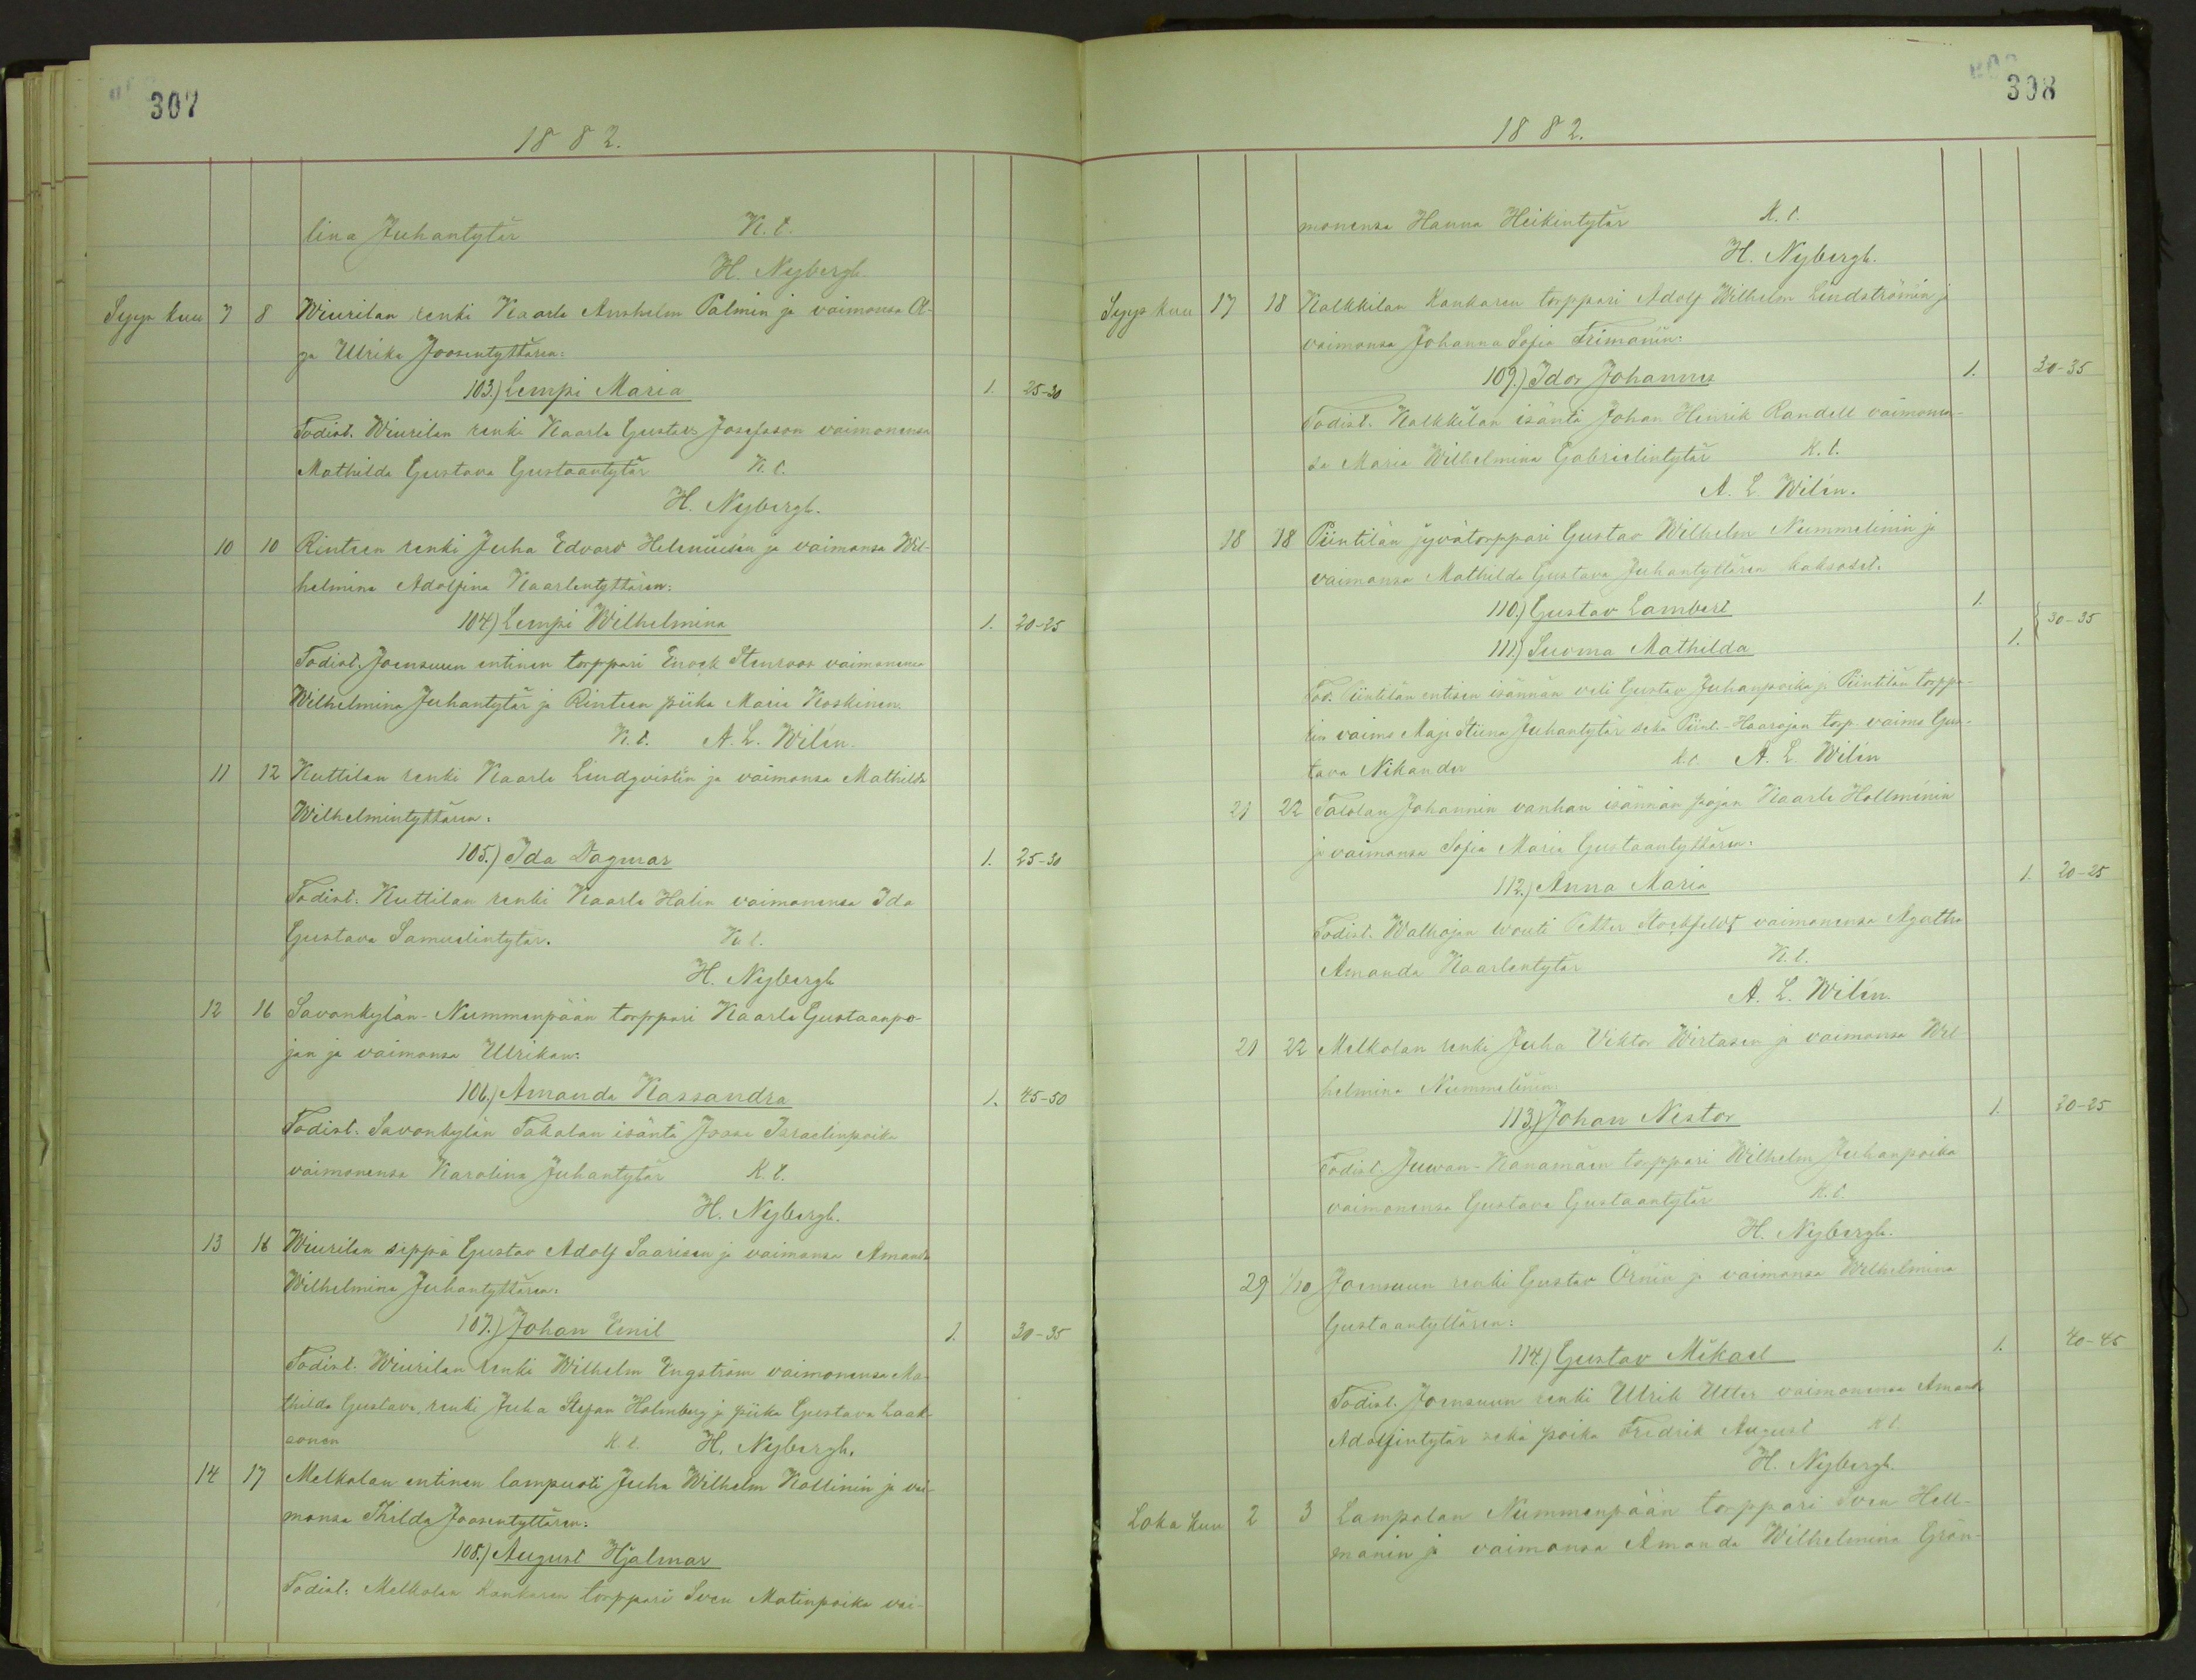 307
1882.
lina Juhantytär K. t.
H. Nybergh.
Syys kuu 7 8 Wiurilan renki Kaarle Anshelm Palmin ja vaimonsa A-
ga Ulrika Joosentyttären:
103.) Lempi Maria 1. 25-30
Todist. Wiurilan renki Kaarle Gustav Josefsson vaimonensa
Mathilda Gustava Gustaantytär K. t.
H. Nybergh.
10 10 Rinteen renki Juha Edvard Heleniusen ja vaimonsa Wil-
helmina Adolfina Kaarlentyttären:
104.) Lempi Wilhelmina 1. 20-25
Todist. Joensuun entinen torppari Enock Stenroos vaimonensa
Wilhelmina Juhantytär ja Rinteen piika Maria Koskinen.
K. t. A. L. Wilén.
11 12 Kuttilan renki Kaarle Lindqvistin ja vaimonsa Mathilda
Wilhelmintyttären:
105.) Ida Dagmar 1. 25-30
Todist. Kuttilan renki Kaarle Halin vaimonensa Ida
Gustava Samuelintytär. K. t.
H. Nybergh
12 16 Savonkylän-Nummenpään torppari Kaarle Gustaanpo-
jan ja vaimonsa Ulrikan:
106.) Amanda Kassandra 1. 45-50
Todist. Savonkylän Takalan isäntä Joose Israelinpoika
vaimonensa Karolina Juhantytär K. t.
H. Nybergh.
13 16 Wiurilan seppä Gustav Adolf Saarisen ja vaimonsa Amanda
Wilhelmina Juhantyttären:
107.) Johan Emil 1. 30-35
Todist. Wiurilan renki Wilhelm Engström vaimonensa Ma-
thilda Gustava, renki Juha Stefan Holmberg ja piika Gustava Laak-
sonen K. t. H. Nybergh.
14 17 Melkolan entinen lampuoti Juha Wilhelm Kollinin ja vai-
monsa Thilda Joosentyttären:
108.) August Hjalmar
Todist. Melkolan Kankaren torppari Sven Matinpoika vai-
308
1882.
monensa Hanna Heikintytär K. t.
H. Nybergh.
Syys kuu 17 18 Kalkkilan Kankaren torppari Adolf Wilhelm Lindströmin ja
vaimonsa Johanna Sofia Frimanin:
109.) Idor Johannes 1. 30-35
Todist. Kalkkilan isäntä Johan Henrik Randell vaimonen-
sa Maria Wilhelmina Gabrielintytär K. t.
A. L. Wilén.
18 18 Piintilän jyvätorppari Gustav Wilhelm Nummelinin ja
vaimonsa Mathilda Gustava Juhantyttären kaksoset.
110.) Gustav Lambert 1.
30-35
111.) Suoma Mathilda 1.
Tod. Piintilän entisen isännän veli Gustav Juhanpoika ja Piintilän torppa-
rin vaimo Maja Stiina Juhantytär sekä Piint.-Haarojan torp. vaimo Gus-
tava Nikander k.t. A. L. Wilén
21 22 Tatolan Johannin vanhan isännän pojan Kaarle Hollménin
ja vaimonsa Sofia Maria Gustaantyttären:
112.) Anna Maria 1. 20-25
Todist. Walhojan vouti Petter Stockfeldt vaimonensa Agatha
Amanda Kaarlentytär K. t.
A. L. Wilén.
21 22 Melkolan renki Juha Viktor Wirtasen ja vaimonsa Wil-
helmina Nummelinin:
113.) Johan Nestor 1. 20-25
Todist. Juwan-Kanamäen torppari Wilhelm Juhanpoika
vaimonensa Gustava Gustaantytär K. t.
H. Nybergh.
29 1/10 Joensuun renki Gustav Örnin ja vaimonsa Wilhelmina
Gustaantyttären:
114.) Gustav Mikael 1. 40-45
Todist. Joensuun renki Ulrik Utter vaimonensa Amanda
Adolfintytär sekä poika Fredrik August K. t.
H. Nybergh.
Loka kuu 2 3 Lampolan Nummenpään torppari Sven Hell-
manin ja vaimonsa Amanda Wilhelmina Grön-